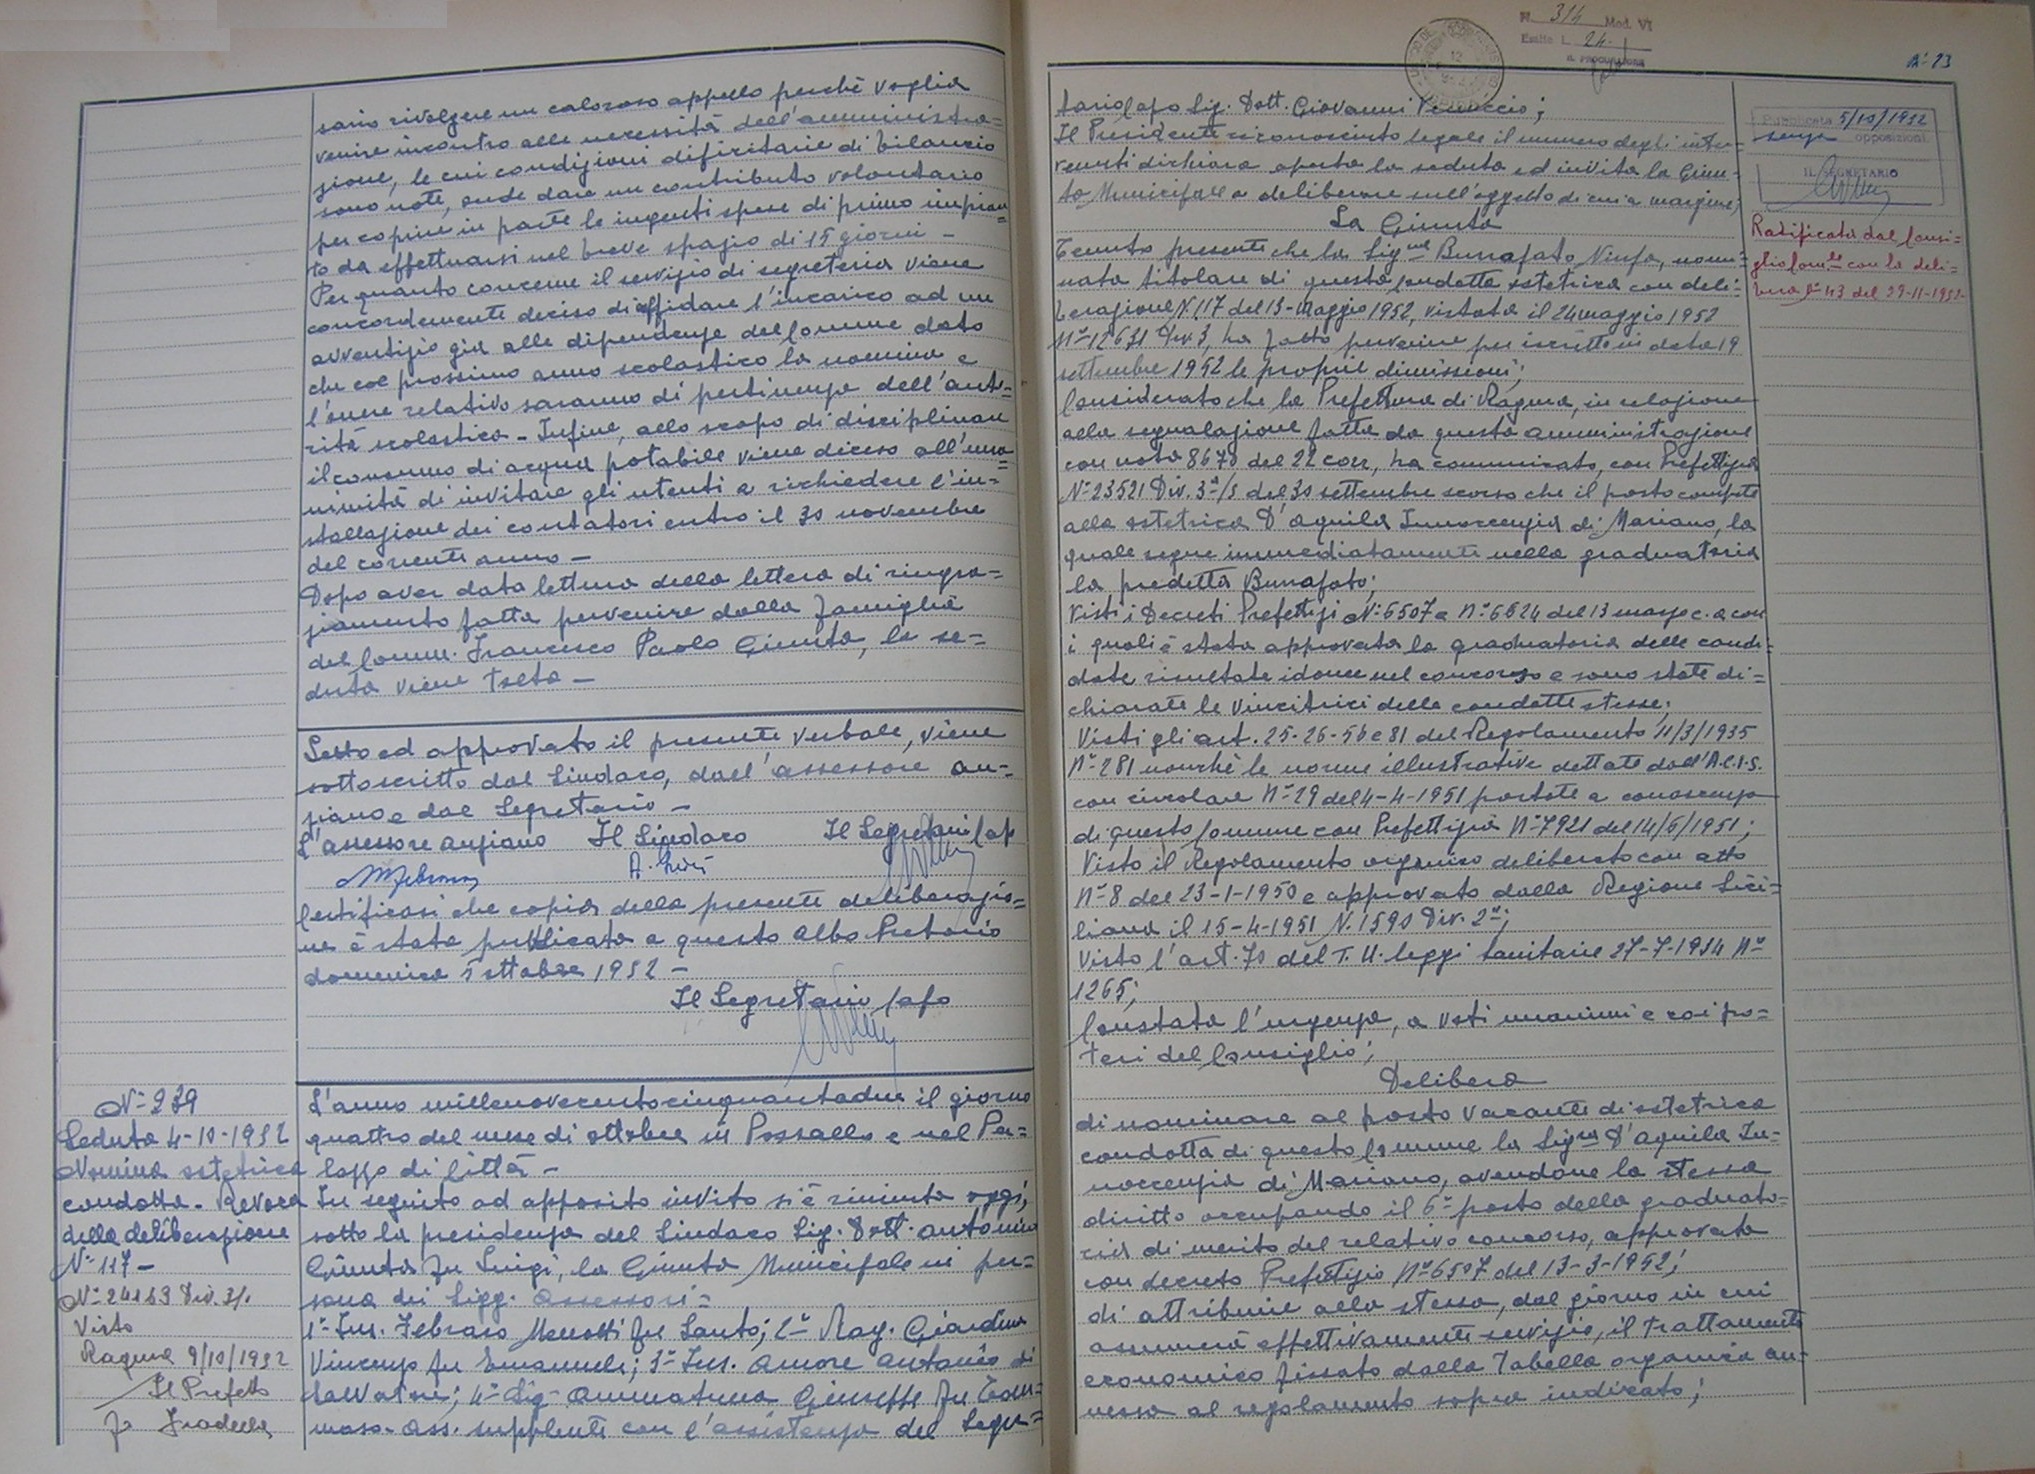 sario rivolgere un caloroso appello perchè voglia
venire incontro alle necessità dell'amministra=
zione, le cui condizioni dificitarie di bilancio
sono note, onde dare un contributo volontario
per coprire in parte le ingenti spese di primo impian=
to da effettuarsi nel breve spazio di 15 giorni -
Per quanto concerne il servizio di segreteria viene
concordemente deciso di affidare l'incarico ad un
avventizio già alle dipendenze del Comune dato
che col prossimo anno scolastico la nomina e
l'onere relativo saranno di pertinenza dell'auto=
rità scolastica - Infine, allo scopo di disciplinare
il consumo di acqua potabile viene deciso all'una=
nimità di invitare gli utenti a richiedere l'in=
stallazione dei contatori entro il 30 novembre
del corrente anno -
Dopo aver data lettura della lettera di ringra=
ziamento fatta pervenire dalla famiglia
del Comm. Francesco Paolo Giunta, la se=
duta viene tolta -
Letto ed approvato il presente verbale, viene
sottoscritto dal Sindaco, dall'assessore an=
ziano e dal Segretario -
L'assessore anziano Il Sindaco Il Segretario Capo
Certificasi che copia della presente deliberazio=
ne è stata pubblicata a questo Albo Pretorio
domenica 5 ottobre 1952 -
Il Segretario Capo
N° 239
Seduta 4-10-1952
Nomina ostetrica
condotta - Revoca
della deliberazione
N° 117 -
N° 24163 Div. 3/.
Visto
Ragusa 9/10/1952
Il Prefetto
L'anno millenovecentocinquantadue il giorno
quattro del mese di ottobre in Pozzallo e nel Pa=
lazzo di Città -
In seguito ad apposito invito si è riunita oggi,
sotto la presidenza del Sindaco Sig. Dott. Antonino
Giunta fu Luigi, la Giunta Municipale in per=
sona dei Sigg. Assessori =
1° Ins. Febraro Menotti fu Santo; 2° Rag. Giardina
Vincenzo fu Emanuele; 3° Ins. Amore Antonio di
Salvatore; 4° Sig. Ammatuna Giuseppe fu Tom=
maso - Ass. supplente con l'assistenza del Segre=
N. 314 Mod. VI
Esatte L. 24.
IL PROCURATORE
N° 23
tario Capo Sig. Dott. Giovanni
Il Presidente riconosciuto legale il numero degli inter=
venuti dichiara aperta la seduta ed invita la Giun=
ta Municipale a deliberare sull'oggetto di cui a margine;
La Giunta
Tenuto presente che la Sig.na Burrafato Ninfa, nomi=
nata titolare di questa condotta ostetrica con deli=
berazione N. 117 del 13-Maggio 1952, vistata il 24 maggio 1952
N° 12631 Div. 3, ha fatto pervenire per iscritto in data 19
settembre 1952 le proprie dimissioni;
Considerato che la Prefettura di Ragusa, in relazione
alla segnalazione fatta da questa amministrazione
con nota 8670 del 22 corr, ha comunicato, con Prefettizia
N° 23521 Div. 3ª/S del 30 settembre scorso che il posto compete
alla ostetrica D'aquila Innocenzia di Mariano, la
quale segue immediatamente nella graduatoria
la predetta Burrafato;
Visti i Decreti Prefettizi N° 6507 e N° 6624 del 13 marzo c.a. con
i quali è stata approvata la graduatoria delle candi=
date risultate idonee nel concorso e sono state di=
chiarate le vincitrici delle condotte stesse;
Visti gli art. 25-26-56 e 81 del Regolamento 11/3/1935
N° 281 nonchè le norme illustrative dettate dall'A.C.I.S.
con circolare N° 29 del 4-4-1951 portate a conoscenza
di questo Comune con Prefettizia N° 7921 del 14/5/1951;
Visto il Regolamento organico deliberato con atto
N° 8 del 23-1-1950 e approvato dalla Regione Sici=
liana il 15-4-1951 N. 1590 Div. 2ª;
Visto l'art. 70 del T.U. leggi sanitarie 27-7-1934 N°
1265;
Constatata l'urgenza, a voti unanimi e coi po=
teri del Consiglio;
Delibera
di nominare al posto vacante di ostetrica
condotta di questo Comune la Sig.na D'aquila In=
nocenzia di Mariano, avendone la stessa
diritto occupando il 6° posto della graduato=
ria di merito del relativo concorso, approvata
con decreto Prefettizio N° 6507 del 13-3-1952;
di attribuire alla stessa, dal giorno in cui
assumerà effettivamente servizio, il trattamento
economico fissato dalla Tabella organica an=
nessa al regolamento sopra indicato;
Pubblicata 5/10/1952
senza opposizioni.
IL SEGRETARIO
Ratificata dal Consi=
glio Com.le con la deli=
bera N° 43 del 29-11-1952-